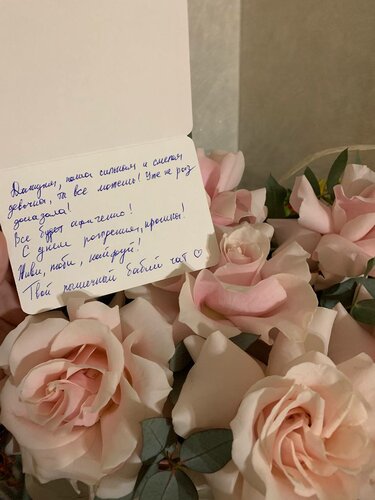 Дашуня, наша сильная и смелая
девочка, ты все можешь! Уже не раз
доказала!
Все будет офигенно!
С днем рождения, крошка!
Живи, люби, кайфуй!
Твой бабий чат ♡